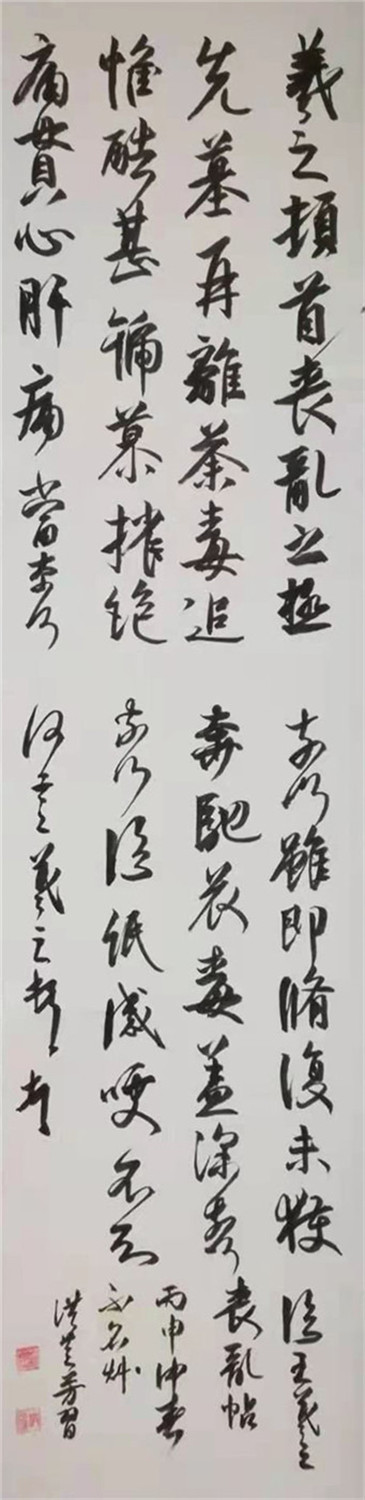 羲之頓首喪亂之極
先墓再離荼毒追
惟酷甚號慕摧絕
痛貫心肝痛當奈何
奈何雖即脩復未獲
奔馳哀毒益深奈何
奈何臨紙感哽不知
何言羲之頓首頓首
臨王羲之
喪亂帖
丙申仲春
洪芳習